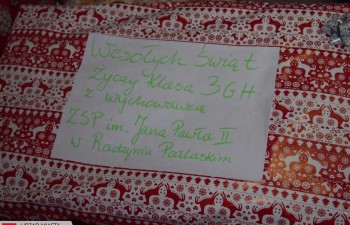 Wesołych Świąt
Życzy klasa 3GH
z wychowawcą
ZSP im. Jana Pawła II
w Radzyniu Podlaskim